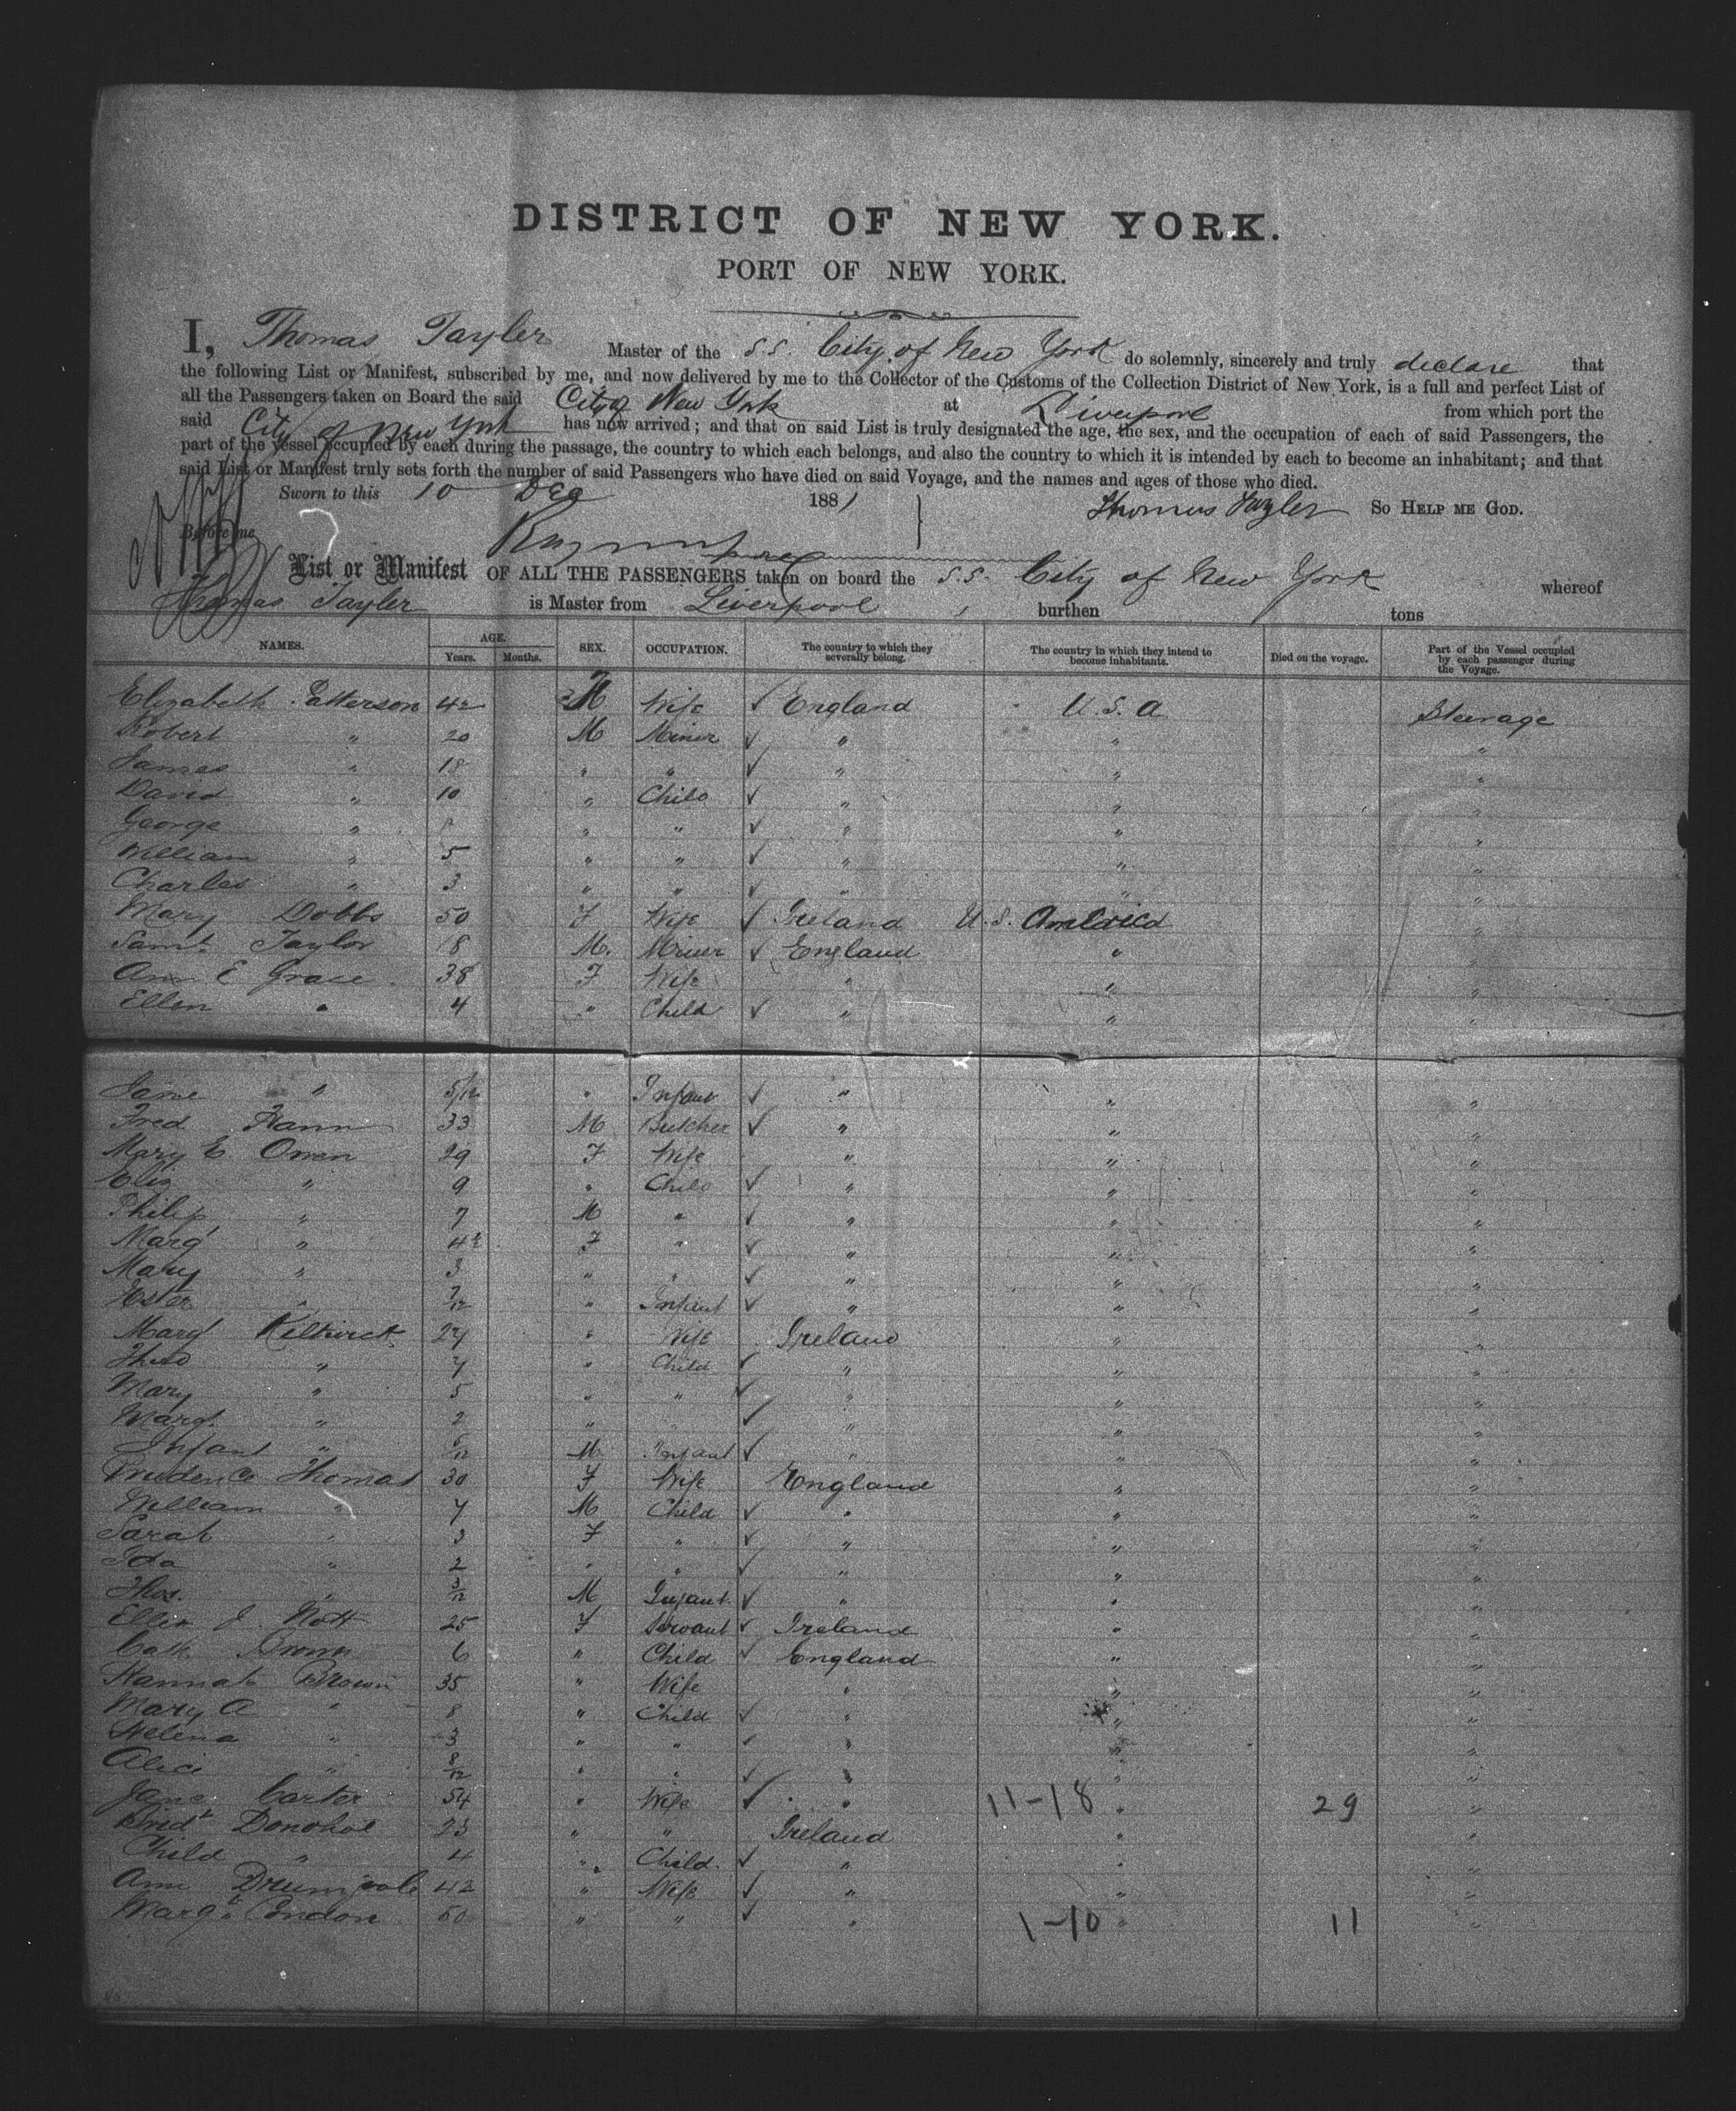 DISTRICT OF NEW YORK.
PORT OF NEW YORK.
I, Thomas Tayler Master of the S.S. City of New York do solemnly, sincerely and truly declare that
the following List or Manifest, subscribed by me, and now delivered by me to the Collector of the Customs of the Collection District of New York, is a full and perfect List of
all the Passengers taken on Board the said City of New York at Liverpool from which port the
said City of New York has now arrived; and that on said List is truly designated the age, the sex, and the occupation of each of said Passengers, the
part of the vessel occupied by each during the passage, the country to which each belongs, and also the country to which it is intended by each to become an inhabitant; and that
said List or Manifest truly sets forth the number of said Passengers who have died on said Voyage, and the names and ages of those who died.
Sworn to this 10 Dec 1881 Thomas Tayler So HELP ME GOD.
Before me
List or Manifest OF ALL THE PASSENGERS taken on board the S.S. City of New York whereof
Thomas Tayler is Master from Liverpool, burthen tons
NAMES. AGE. Years. Months. SEX. OCCUPATION. The country to which they severally belong. The country in which they intend to become inhabitants. Died on the voyage. Part of the Vessel occupied by each passenger during the Voyage.
Elizabeth Patterson 42 Wife ✓ England U.S.A Steerage
Robert " 20 M Miner ✓ " " "
James " 18 " " ✓ " " "
David " 10 " Child ✓ " " "
George " " " ✓ " " "
William " 5 " " ✓ " " "
Charles " 3 " " ✓ " " "
Mary Dobbs 50 F Wife ✓ Ireland U.S. America "
Saml Taylor 18 M. Miner ✓ England " "
Ann E Grace 38 F Wife " " "
Ellen " 4 " Child ✓ " " "
Jane " 5/12 " Infant ✓ " " "
Fred Hann 33 M Butcher ✓ " " "
Mary E Owen 29 F Wife " " "
Eliz " 9 " Child ✓ " " "
Philip " 7 M " ✓ " " "
Margt " 4 F " ✓ " " "
Mary " 3 " " ✓ " " "
Ester " 7/12 " Infant ✓ " " "
Margt 27 " Wife Ireland " "
" 7 " Child ✓ " " "
Mary " 5 " " ✓ " " "
Margt " 2 " " ✓ " " "
Infant " M Infant ✓ " " "
Prudence Thomas 30 F Wife England " "
William " 7 M Child ✓ " " "
Sarah " 3 F " ✓ " " "
Ida " 2 " " ✓ " " "
Thos. " 3/12 M Infant ✓ " " "
Ellen J Nott 25 F Servant ✓ Ireland " "
Cath Brown 6 " Child ✓ England " "
Hannah Brown 35 " Wife " " "
Mary A " 8 " Child ✓ " " "
Helena " 3 " " ✓ " " "
Alice " 8/12 " " ✓ " " "
Jane Carter 54 " Wife ✓ " 11-18 " 29 "
Bridt Donohoe 23 " " Ireland " "
Child " 4 " Child ✓ " " "
Ann 42 " Wife ✓ " " "
Margt Condon 50 " " ✓ " 1-10 " 11 "